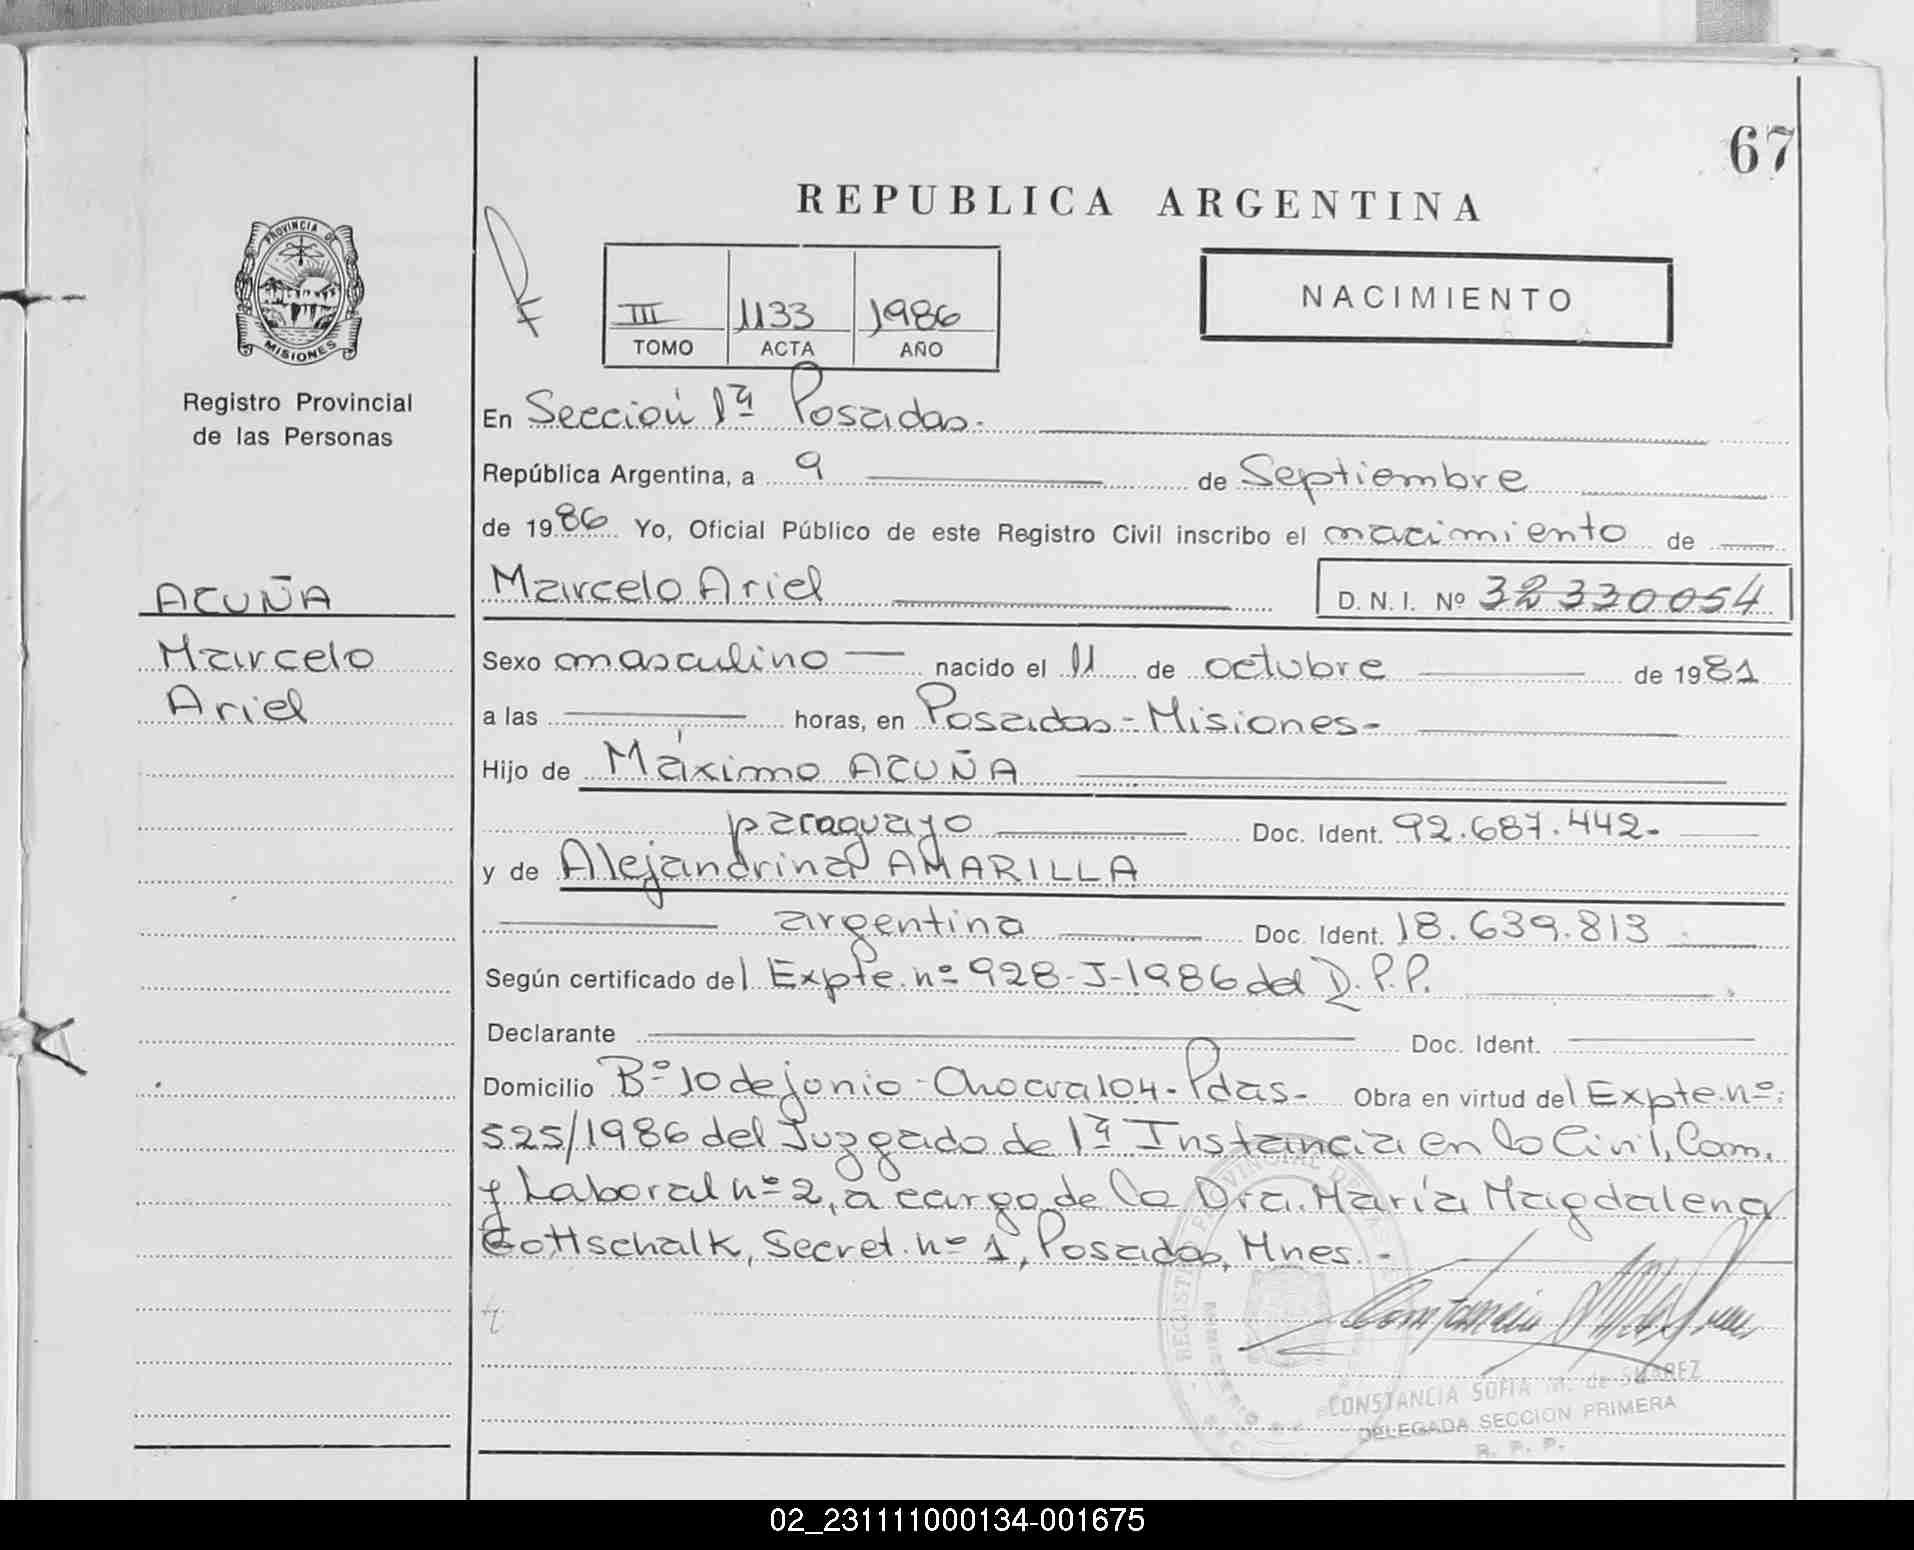 67
REPUBLICA ARGENTINA
PROVINCIA DE
MISIONES
Registro Provincial
de las Personas
III 1133 1986
TOMO ACTA AÑO
NACIMIENTO
En Sección 1ª Posadas.
República Argentina, a 9 de Septiembre
de 1986 Yo, Oficial Público de este Registro Civil inscribo el nacimiento de
ACUÑA
Marcelo
Ariel
Marcelo Ariel D.N.I. Nº 32330054
Sexo masculino nacido el 11 de octubre de 1981
a las horas, en Posadas-Misiones-
Hijo de Máximo ACUÑA
paraguayo Doc. Ident. 92.687.442-
y de Alejandrina AMARILLA
argentina Doc. Ident. 18.639.813
Según certificado del Expte. nº 928-J-1986 del D.P.P.
Declarante Doc. Ident.
Domicilio Bº 10 de junio - 104 - Pdas- Obra en virtud del Expte. nº:
525/1986 del Juzgado de 1ª Instancia en lo Civil, Com.
y Laboral nº 2, a cargo de la Dra. María Magdalena
Gottschalk, Secret. nº 1, Posadas, Mnes. -
CONSTANCIA SOFIA M. de SUAREZ
DELEGADA SECCION PRIMERA
R. P. P.
02_231111000134-001675